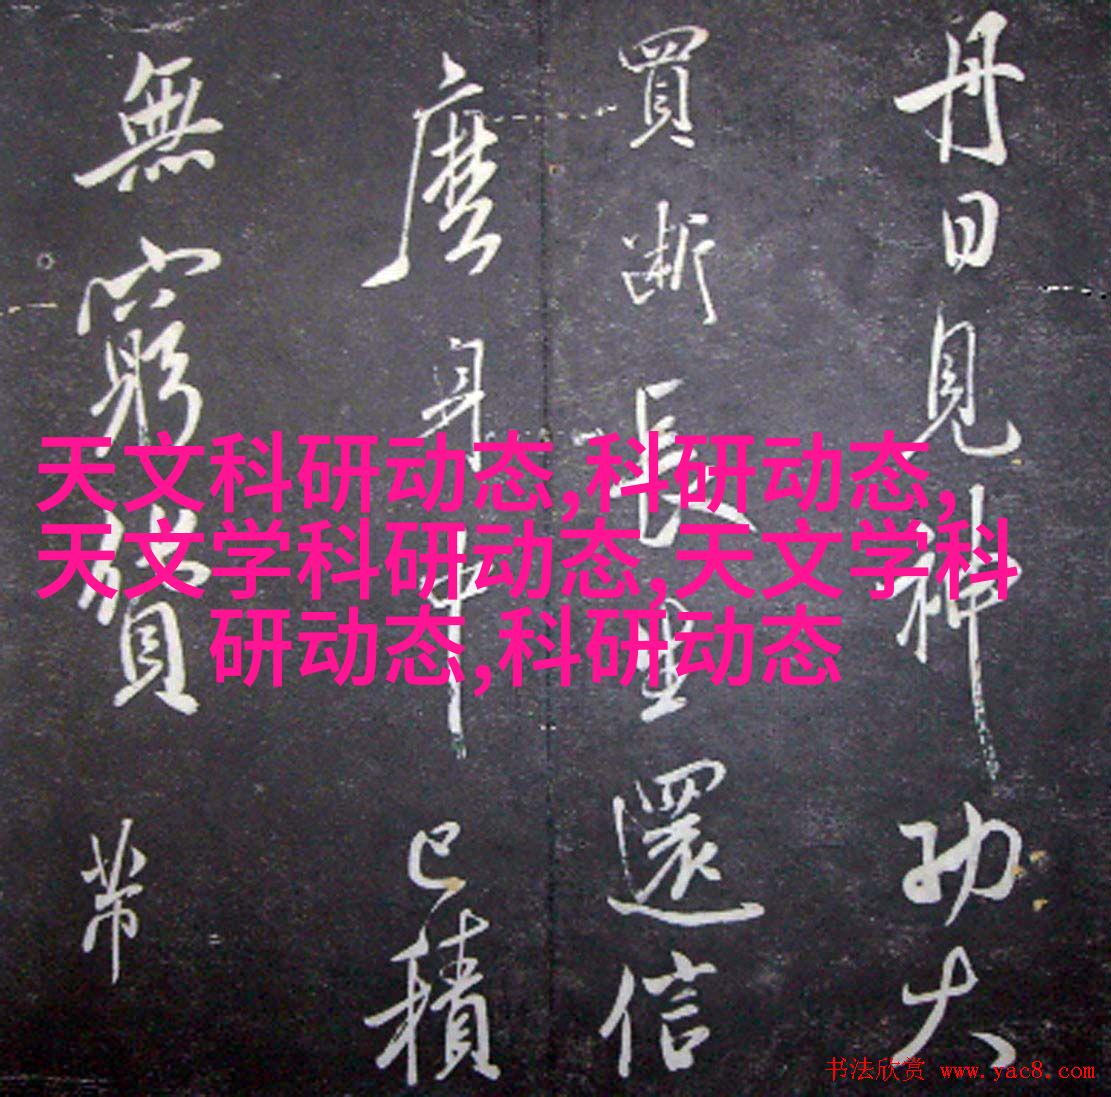 丹日見神功大
買斷長生還信
麼身中已積
無窮貲帶
天文科研动态,科研动态,
天文学科研动态,天文学科
研动态,科研动态
书法欣赏 www.yac8.com